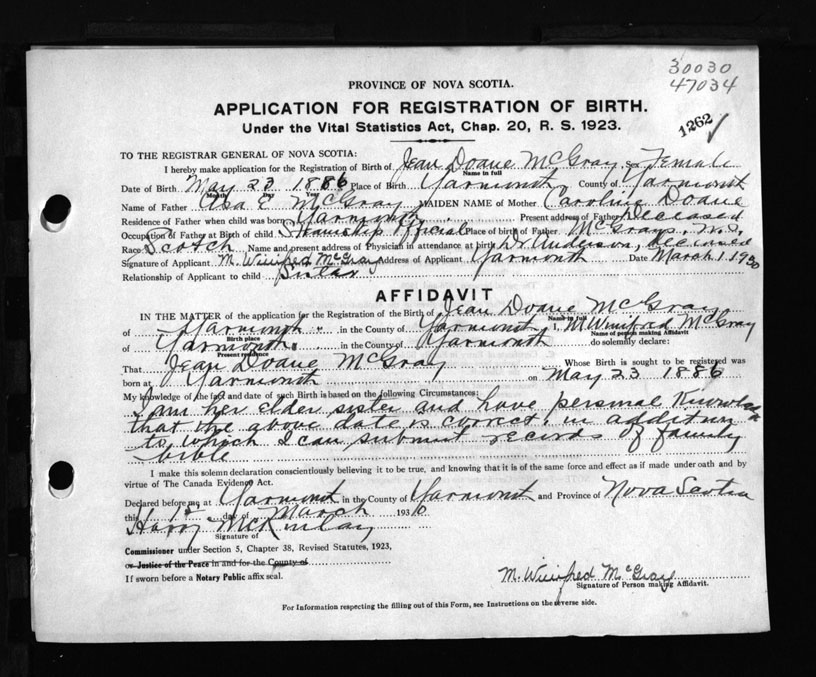 30030
47034
1262
PROVINCE OF NOVA SCOTIA.
APPLICATION FOR REGISTRATION OF BIRTH.
Under the Vital Statistics Act, Chap. 20, R. S. 1923.
TO THE REGISTRAR GENERAL OF NOVA SCOTIA:
I hereby make application for the Registration of Birth of Jean Doane McGray, Female
Name in full
Date of Birth May 23 1886 Place of Birth Yarmouth County of Yarmouth
Month Day
Name of Father Asa E McGray MAIDEN NAME of Mother Caroline Doane
Residence of Father when child was born Yarmouth Present address of Father Deceased
Occupation of Father at Birth of child Steamship Official Place of Birth of Father McGrays, N.S.
Race Scotch Name and present address of Physician in attendance at birth Dr Anderson, deceased
Signature of Applicant M. Winifred McGray Address of Applicant Yarmouth Date March 1 1930
Relationship of Applicant to child Sister
AFFIDAVIT
IN THE MATTER of the application for the Registration of the Birth of Jean Doane McGray
Name in full
of Yarmouth in the County of Yarmouth I, M Winifred McGray
Birth place Name of person making Affidavit
of Yarmouth in the County of Yarmouth do solemnly declare:
Present residence
That Jean Doane McGray Whose Birth is sought to be registered was
born at Yarmouth on May 23 1886
My knowledge of the fact and date of such Birth is based on the following Circumstances:
I am her elder sister and have personal knowledge
that the above date is correct, in addition
to which I can submit records of family
bible
I make this solemn declaration conscientiously believing it to be true, and knowing that it is of the same force and effect as if made under oath and by
virtue of The Canada Evidence Act.
Declared before me at Yarmouth in the County of Yarmouth and Province of Nova Scotia
this 1st day of March 193
Harry McKinlay
Signature of
Commissioner under Section 5, Chapter 38, Revised Statutes, 1923,
or Justice of the Peace in and for the County of
If sworn before a Notary Public affix seal.
M. Winifred McGray
Signature of Person making Affidavit.
For Information respecting the filling out of this Form, see Instructions on the reverse side.